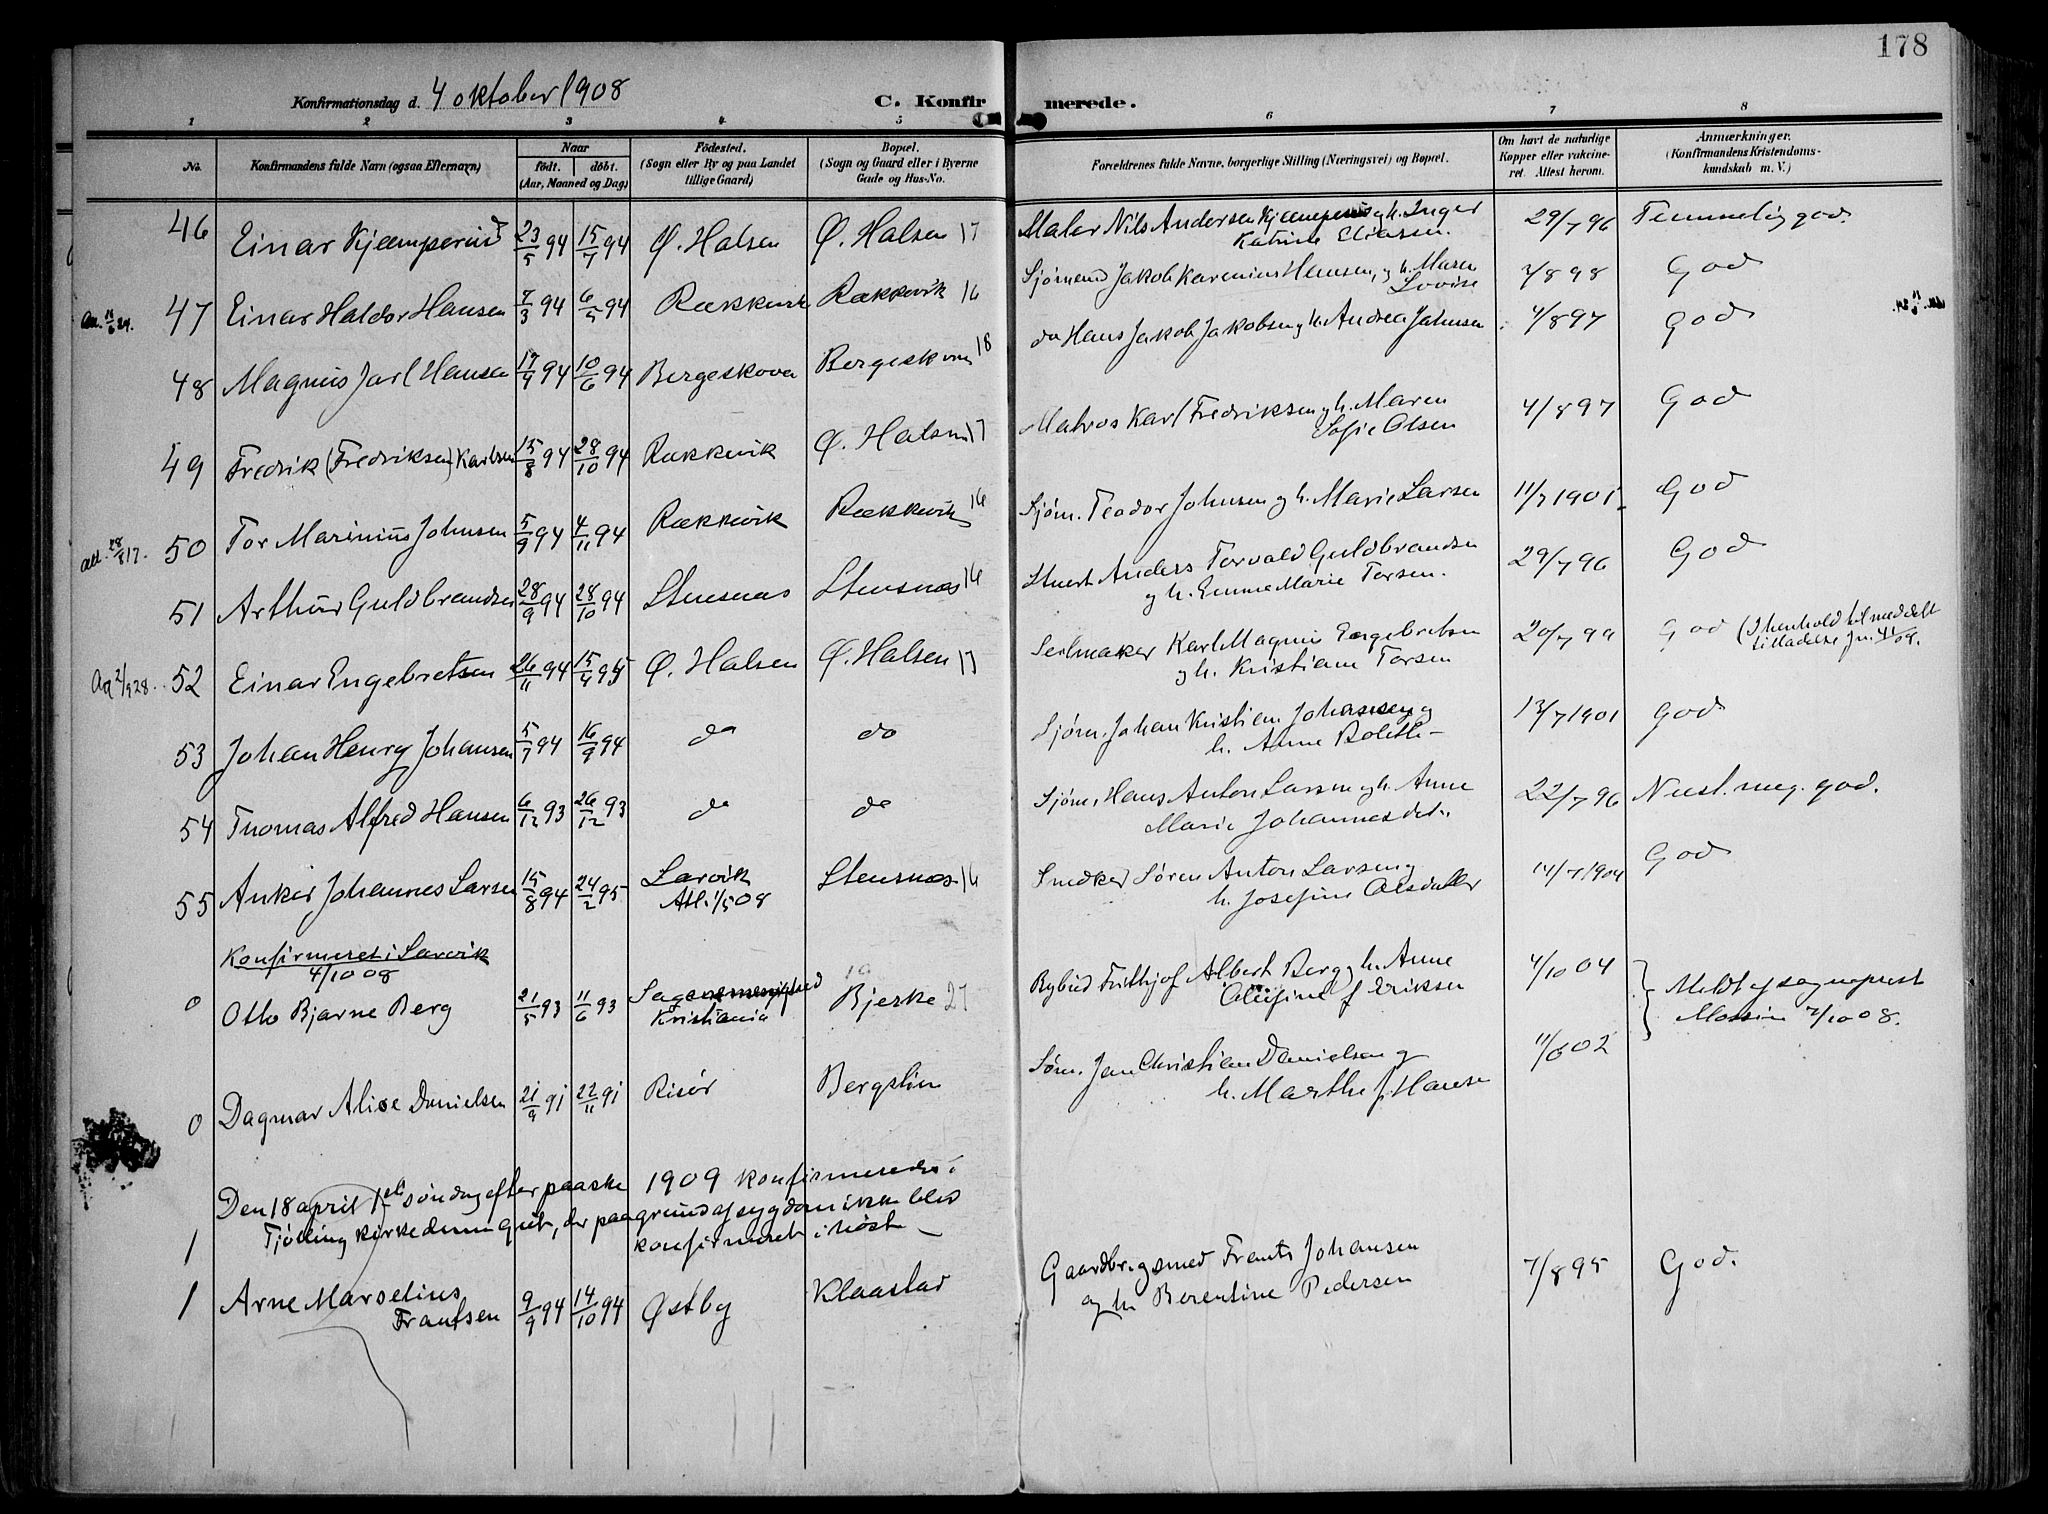 178
Konfirmationsdag d. 4 oktober 1908
C. Konfirmerede.
1 2 3 4 5 6 7 8
No.
Konfirmandens fulde Navn (ogsaa Efternavn)
Naar
født. døbt.
(Aar, Maaned og Dag)
Fødested.
(Sogn eller By og paa Landet
tillige Gaard)
Bopæl.
(Sogn og Gaard eller i Byerne
Gade og Hus-No.
Forældrenes fulde Navne, borgerlige Stilling (Næringsvei) og Bopæl.
Om havt de naturlige
Kopper eller vakcine-
ret. Attest herom.
Anmærkninger.
(Konfirmandens Kristendoms-
kundskab m. V.)
46 Einar Kjæmperud 23/5 94 15/7 94 Ø. Halsen Ø. Halsen 17 Maler Nils Andersen Kjæmperud og h. Inger
Katrine Eliasen. 29/7 96 Temmelig god.
47 Einar Haldor Hansen 7/3 94 6/5 94 Rækkevik Rækkevik 16 Sjømand Jakob Karenius Hansen, og h. Maren
Lovise 7/8 98 God
48 Magnus Jarl Hansen 17/4 94 10/6 94 Bergeskoven Bergeskoven 18 do Hans Jakob Jakobsen og h. Andrea Johnsen 4/8 97 God
49 Fredrik (Fredriksen) Karlsen 15/8 94 28/10 94 Rækkevik Ø. Halsen 17 Matros Karl Fredriksen og h. Maren
Sofie Olsen 4/8 97 God
50 Tor Marinius Johnsen 5/9 94 4/11 94 Rækkevik Rækkevik 16 Sjøm. Teodor Johnsen og h. Marie Larsen 11/7 1901. God
51 Arthur Guldbrandsen 28/9 94 28/10 94 Stensnæs Stensnæs 16 Stuert Anders Torvald Guldbrandsen
og h. Emma Marie Torsen. 29/7 96 God
52 Einar Engebretsen 26/11 94 15/4 95 Ø. Halsen Ø. Halsen 17 Seilmaker Karl Magnus Engebretsen
og h. Kristiane Torsen 20/7 99 God (I henhold til meddelt
tilladelse jn. 41/09.
53 Johan Henry Johansen 5/7 94 16/9 94 do do Sjøm. Johan Kristian Johansen og
h. Anne Bolette 13/7 1901 God
54 Thomas Alfred Hansen 6/12 93 26/12 93 do do Sjøm. Hans Anton Larsen og h. Anne
Marie Johannesdat. 22/7 96 Næst. meg. god.
55 Anker Johannes Larsen 15/8 94 24/2 95 Larvik
Att. 1/5 08 Stensnæs 16 Snedker Søren Anton Larsen og
h. Josefine Olsdatter 14/7 1904 God
Konfirmeret i Larvik
4/10 08
0 Otto Bjarne Berg 21/5 93 11/6 93 Sagenes menighed
Kristiania Bjerke 27 Rybud Frithjof Albert Berg og h. Anne
Olufine f. Eriksen 4/10 04 Meldt af sogneprest
Mossin 7/10 08.
0 Dagmar Alise Danielsen 21/9 91 22/11 91 Risør Bergslien Søm. Jan Christian Danielsen og
h. Marthe f. Hansen 11/6 02
1 Den 18 april 1ste søndag efter paaske 1909 konfirmeredes i
Tjølling kirke denne gut, der paa grund af sygdom ikke blev
konfirmeret i høst
1 Arne Marselius
Frantsen 9/9 94 14/10 94 Østby Klaastad Gaardbrugsmed Frants Johansen
og h. Berentine Pedersen 7/8 95 God.